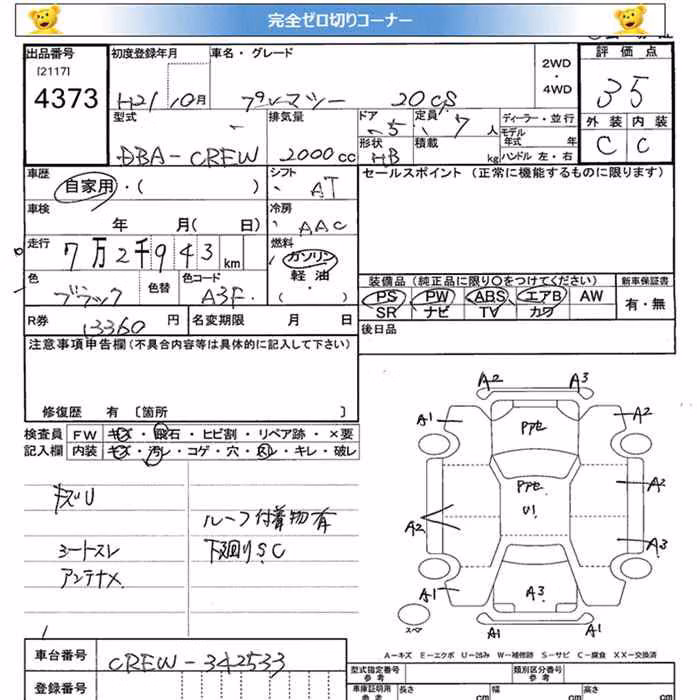 完全ゼロ切りコーナー
出品番号 初度登録年月 車名・グレード 2WD・4WD 評価点
[2117]
4373 H21 10月 プレマシー 20CS 35
型式 排気量 ドア 定員 ディーラー・並行 外装 内装
5 7人 モデル年式 年
DBA-CREW 2000cc 形状 HB 積載 kg ハンドル 左・右 C C
車歴 シフト セールスポイント (正常に機能するものに限ります)
自家用・( ) AT
車検 冷房
年 月( 日) AAC
走行 燃料
7万2千943km ガソリン
軽油
・( )
色 色替 色コード
ブラック A3F
装備品 (純正品に限り〇をつけてください) 新車保証書
PS PW ABS エアB AW 有・無
SR ナビ TV カワ
R券 13360円 名変期限 月 日
後日品
注意事項申告欄(不具合内容等は具体的に記入して下さい)
修復歴 有 〔箇所 〕
検査員 FW キズ・飛石・ヒビ割・リペア跡・×要
記入欄 内装 キズ・汚レ・コゲ・穴・スレ・キレ・破レ
キズU
ルーフ付着物有
シートスレ 下廻りS.C
アンテナX
A2 A3
A1 Pアセ A2
Pアセ A2
U1
A2 A3
A1 A3 A1
スペア A1 A1
A-キズ E-エクボ U-凹み W-補修跡 S-サビ C-腐食 XX-交換済
車台番号 CREW-342533
型式指定番号 参考 類別区分番号 参考
登録番号
車庫証明用 参考 長さ cm 幅 cm 高さ cm